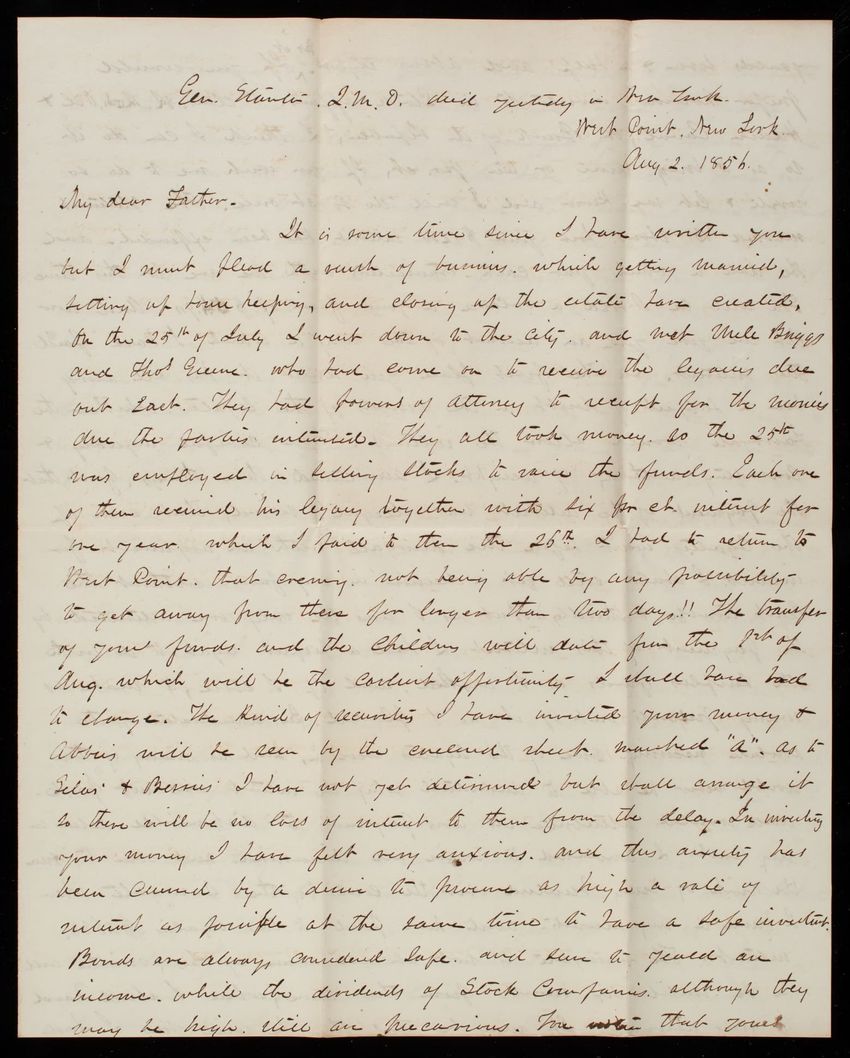 Gen. Stanton. Q.M.D. died yesterday in New York.
West Point. New York
Aug 2. 1856.
My dear Father.
It is some time since I have written you
but I must plead a rush of business. which getting married,
setting up house keeping, and closing up the estate have created.
On the 25th of July I went down to the city. and met Uncle Briggs
and Thos Greene. who had come on to receive the legacies due
out East. They had powers of attorney to receipt for the monies
due the parties interested. They all took money. so the 25th
was employed in selling stocks to raise the funds. Each one
of them received his legacy together with six pr ct. interest for
one year. which I paid to them the 26th. I had to return to
West Point. that evening. not being able by any possibility
to get away from there for longer than two days!! The transfer
of your funds. and the Childrens will date from the 1st of
Aug. which will be the earliest opportunity I shall have had
to change. The kind of securities I have invested your money &
Abbies will be seen by the enclosed sheet. marked "A". As to
Silas' & Bessies' I have not yet determined but shall arrange it
so there will be no loss of interest to them from the delay. In investing
your money I have felt very anxious. and this anxiety has
been caused by a desire to procure as high a rate of
interest as possible at the same time to have a safe investment.
Bonds are always considered safe. and sure to yeald an
income. while the dividends of Stock Companies. although they
may be high. still are precarious. For that your